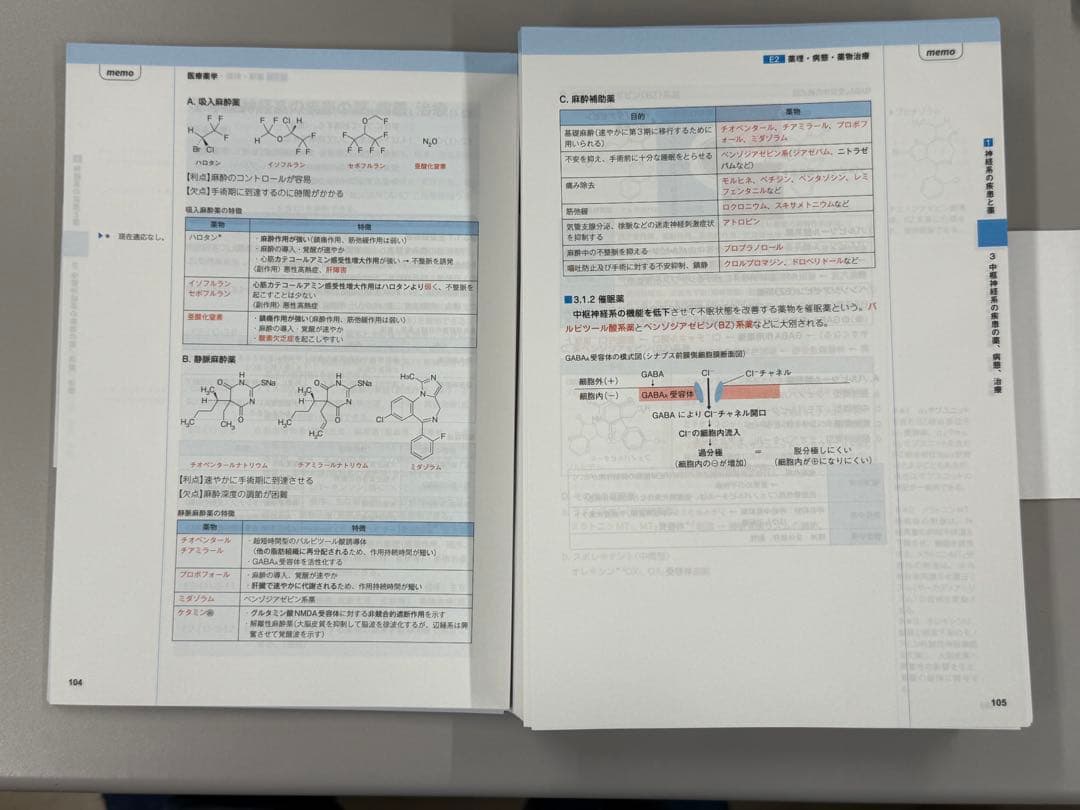 memo
医療薬学
A. 吸入麻酔薬
F F
H
F
Br Cl
F F Cl H
H O F
F F
O F
F F
F F F F
N₂O
ハロタン
イソフルラン
セボフルラン
亜酸化窒素
【利点】麻酔のコントロールが容易
【欠点】手術期に到達するのに時間がかかる
吸入麻酔薬の特徴
薬物 特徴
▶* 現在適応なし。
ハロタン*
・麻酔作用が強い(鎮痛作用、筋弛緩作用は弱い)
・麻酔の導入・覚醒が速やか
・心筋カテコールアミン感受性増大作用が強い → 不整脈を誘発
(副作用) 悪性高熱症、肝障害
イソフルラン
セボフルラン
心筋カテコールアミン感受性増大作用はハロタンより弱く、不整脈を
起こすことは少ない
(副作用) 悪性高熱症
亜酸化窒素
・鎮痛作用が強い(麻酔作用、筋弛緩作用は弱い)
・麻酔の導入・覚醒が速やか
・酸素欠乏症を起こしやすい
B. 静脈麻酔薬
H
O N SNa
H₃C
H N
H₃C O
CH₃
H
O N SNa
H₃C
H N
H₃C O
H₂C
H₃C N
N
Cl N
F
チオペンタールナトリウム
チアミラールナトリウム
ミダゾラム
【利点】速やかに手術期に到達させる
【欠点】麻酔深度の調節が困難
静脈麻酔薬の特徴
薬物 特徴
チオペンタール
チアミラール
・超短時間型のバルビツール酸誘導体
(他の脂肪組織に再分配されるため、作用持続時間が短い)
・GABAA受容体を活性化する
プロポフォール
・麻酔の導入、覚醒が速やか
・肝臓で速やかに代謝されるため、作用持続時間が短い
ミダゾラム
ベンゾジアゼピン系薬
ケタミン㊙
・グルタミン酸NMDA受容体に対する非競合的遮断作用を示す
・解離性麻酔薬(大脳皮質を抑制して脳波を徐波化するが、辺縁系は興
奮させて覚醒波を示す)
104
E2 薬理・病態・薬物治療
memo
C. 麻酔補助薬
目的 薬物
基礎麻酔(速やかに第3期に移行するために
用いられる)
チオペンタール、チアミラール、プロポフ
ォール、ミダゾラム
不安を抑え、手術前に十分な睡眠をとらせる
ベンゾジアゼピン系(ジアゼパム、ニトラゼ
パムなど)
痛み除去
モルヒネ、ペチジン、ペンタゾシン、レミ
フェンタニルなど
筋弛緩
ロクロニウム、スキサメトニウムなど
気管支腺分泌、徐脈などの迷走神経刺激症状
を抑制する
アトロピン
麻酔中の不整脈を抑える
プロプラノロール
嘔吐防止及び手術に対する不安抑制、鎮静
クロルプロマジン、ドロペリドールなど
■3.1.2 催眠薬
中枢神経系の機能を低下させて不眠状態を改善する薬物を催眠薬という。バ
ルビツール酸系薬とベンゾジアゼピン(BZ)系薬などに大別される。
GABAA受容体の模式図(シナプス前膜側細胞膜断面図)
GABA Cl⁻ Cl⁻チャネル
細胞外(+)
細胞内(−)
GABAA 受容体
GABA によりCl⁻チャネル開口
↓
Cl⁻の細胞内流入
↓
過分極 = 脱分極しにくい
(細胞内の⊖が増加) (細胞内が⊕になりにくい)
1 神経系の疾患と薬
3 中枢神経系の疾患の薬、病態、治療
105